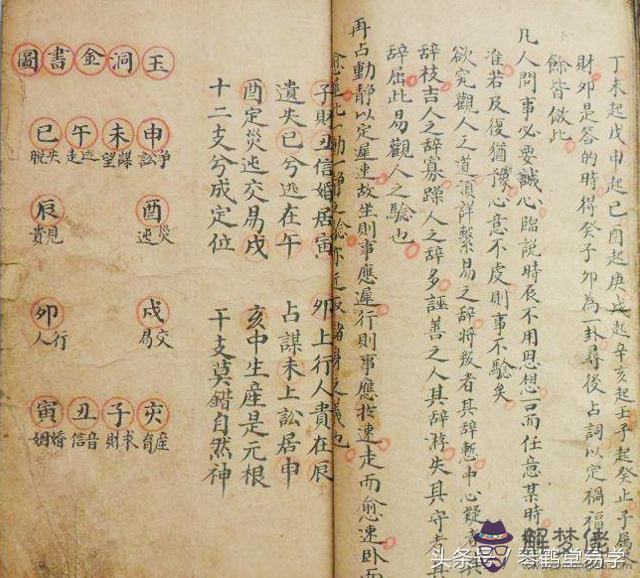 丁未起戊申起己酉起庚戌起辛亥起壬子起癸止子属
財卯是答的時得癸子卯為一卦尋後占詞以定禍福
餘皆倣此
凡人問事必要誠心臨說時辰不用思想言而任意某時
准若反復猶豫心意不虔則事不驗矣
欲究觀人之道須詳繫易之辞將叛者其辞慙中心疑者其
辞枝吉人之辞寡躁人之辞多誣善之人其辞游失其守者其
辞屈此易觀人之驗也
再占動静以定遲速故坐則事應遲行則事應於速走而愈速卧而
愈遲此一動一静之驗亦近取諸身之義也
子財丑信婚居寅 卯上行人貴在辰
遺失已兮逃在午 占謀未上訟居申
酉定災迯交易戌 亥中生産是元根
十二支兮成定位 干支莫錯自然神
玉洞金書圖
申 未 午 巳
爭訟 謀望 逃走 失脫
酉 辰
災迯 見貴
戌 卯
交易 行人
亥 子 丑 寅
産育 求財 音信 婚姻
解梦佬
头条号/琴鹤堂易学